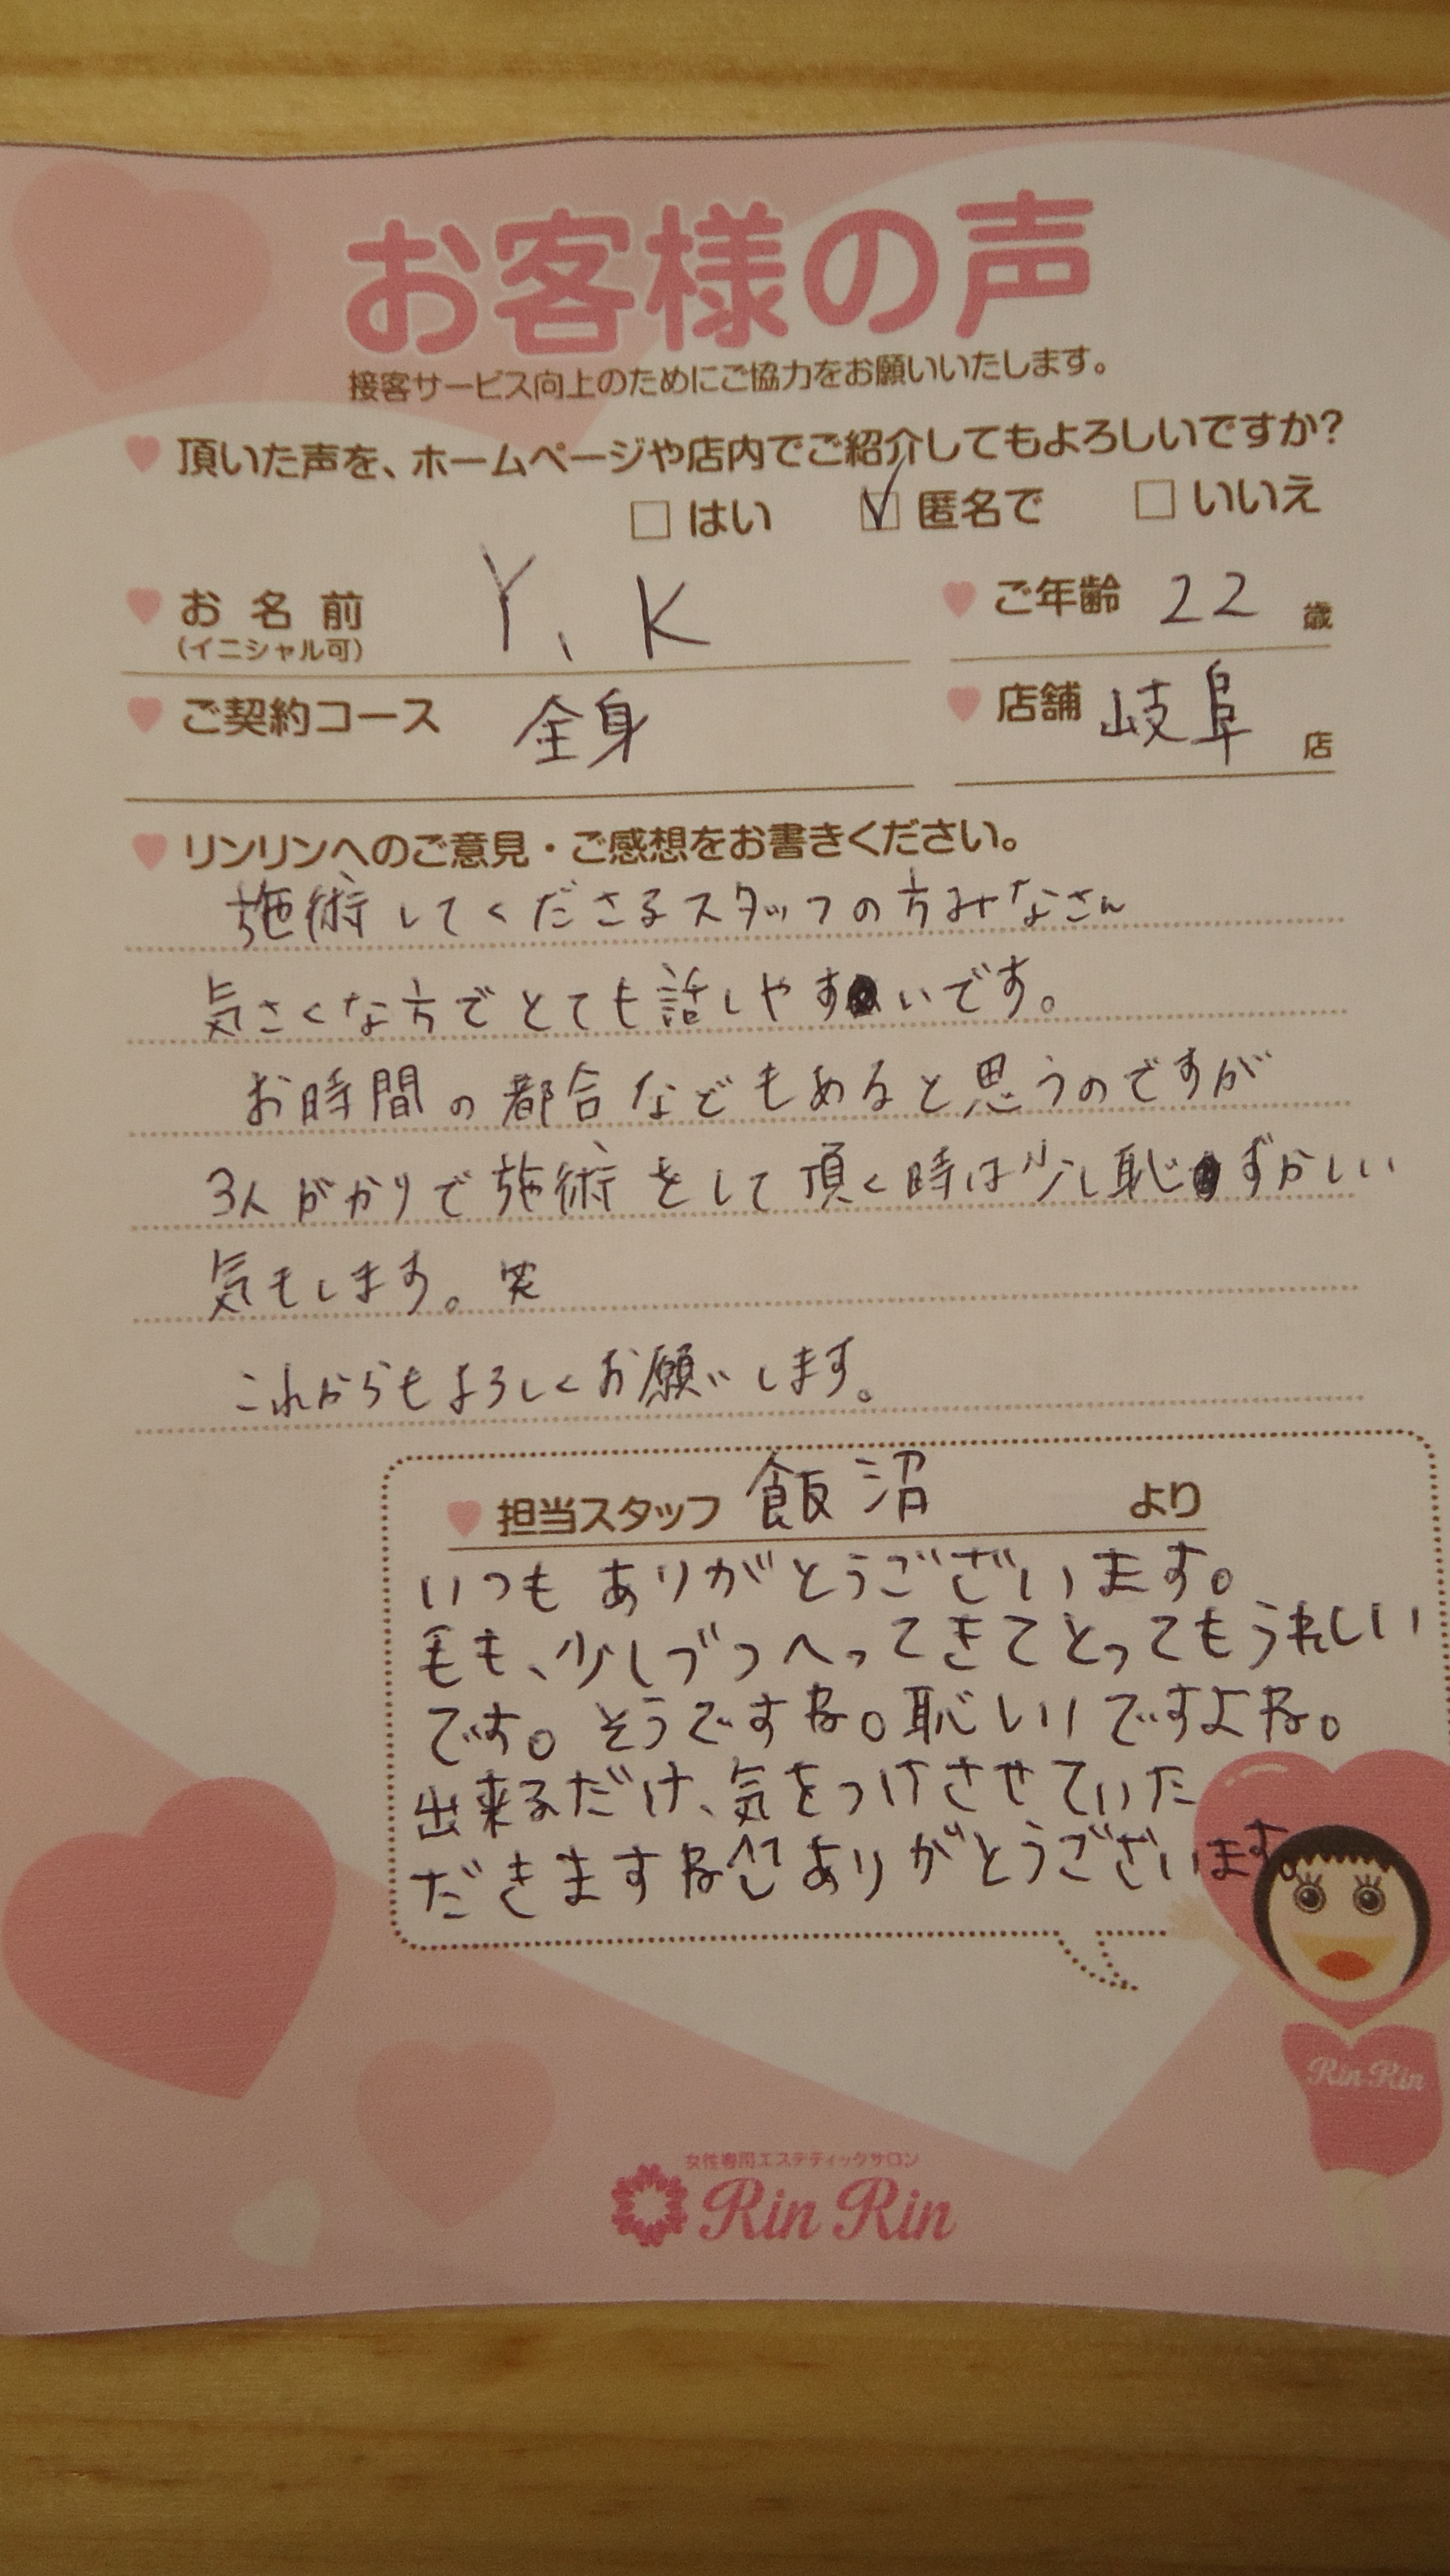 お客様の声
接客サービス向上のためにご協力をお願いいたします。
頂いた声を、ホームページや店内でご紹介してもよろしいですか?
はい 匿名で いいえ
お名前 Y、K ご年齢 22 歳
(イニシャル可)
ご契約コース 全身 店舗 岐阜 店
リンリンへのご意見・ご感想をお書きください。
施術してくださるスタッフの方みなさん
気さくな方でとても話しやすいです。
お時間の都合などもあると思うのですが
3人がかりで施術をして頂く時は少し恥ずかしい
気もします。笑
これからもよろしくお願いします。
担当スタッフ 飯沼 より
いつもありがとうございます。
毛も、少しづつへってきてとってもうれしい
です。そうですね。恥しいですよね。
出来るだけ、気をつけさせていた
だきますね ありがとうございます。
Rin Rin
女性専用エステティックサロン
Rin Rin